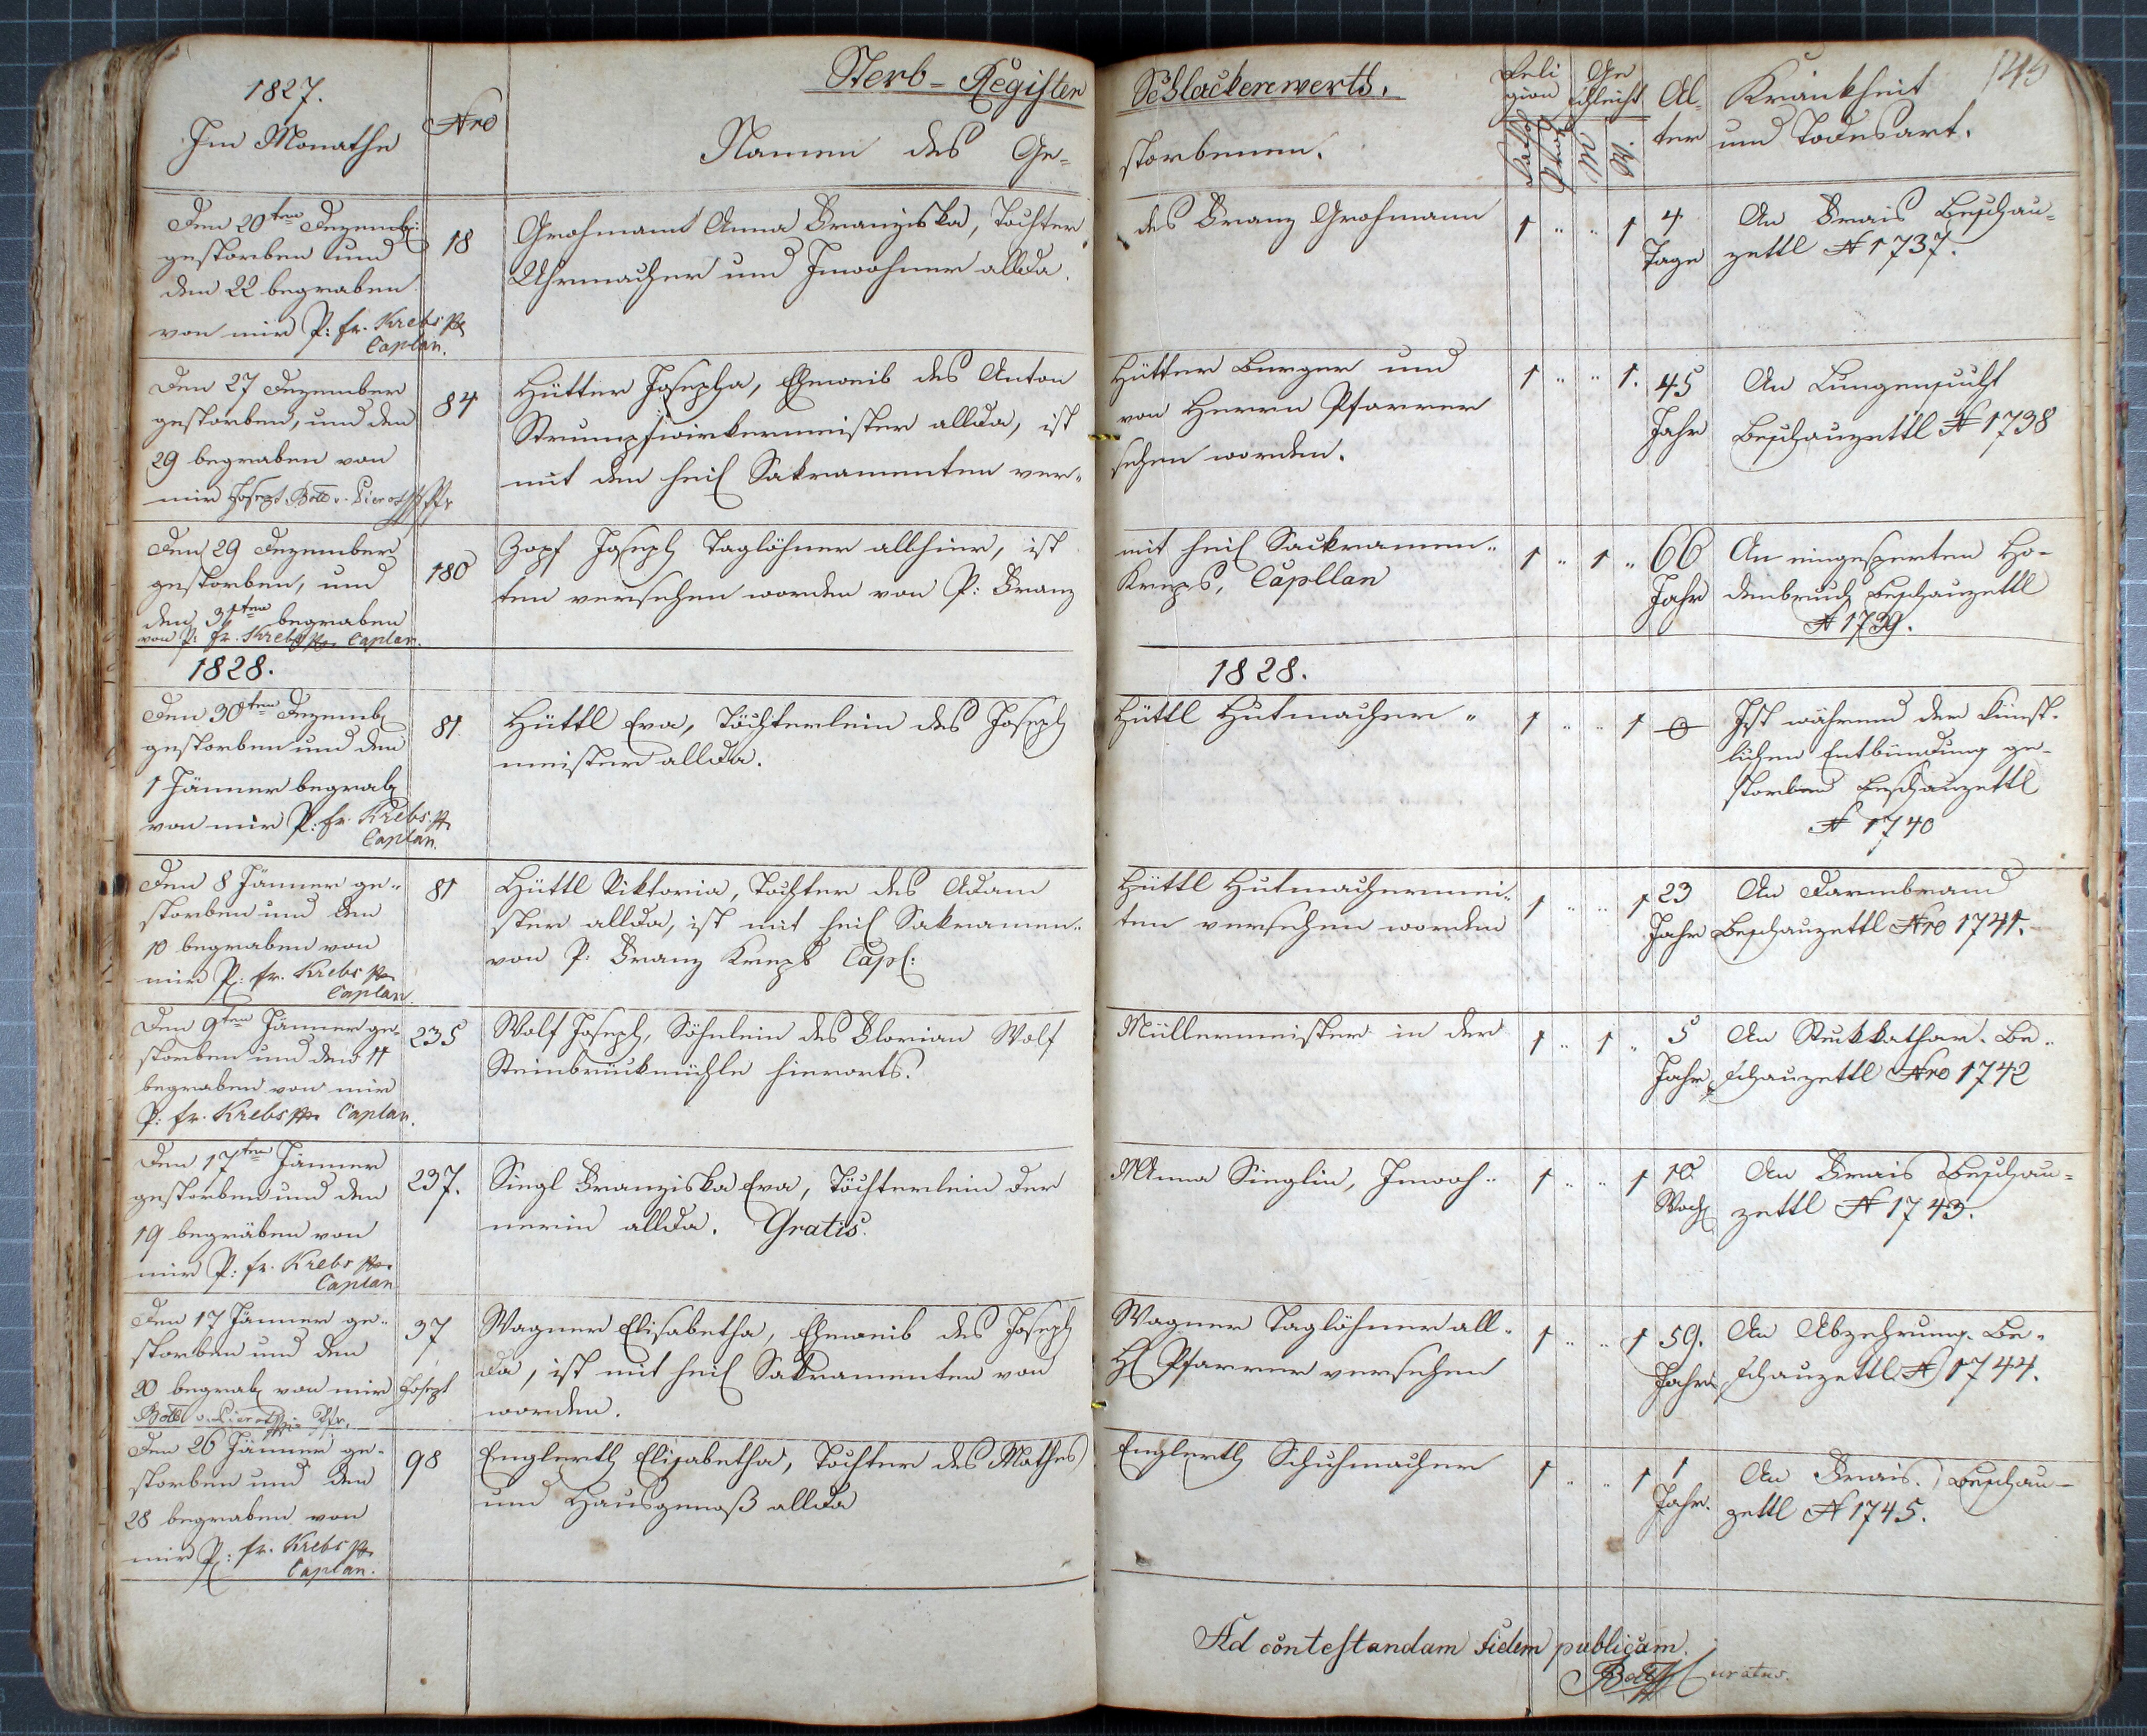 1827.
Im Monathe
Nro
Sterb-Register
Namen des Ge-
Schlackenwerth.
storbenen.
Reli
gion
Ge
schlecht
Al-
ter
Krankheit
und Todesart.
149
Den 20ten Dezemb:
gestorben und
den 22 begraben
von mir P: fr. Krebs
Caplan.
18
Grohmann Anna Franziska, Tochter
Uhrmacher und Inwohner allda.
des Franz Grohmann
1 " " 1
4
Tage
An Frais Beschau-
zettl N 1737.
Den 27 Dezember
gestorben, und den
29 begraben von
mir Joseph
84
Hütter Josepha, Eheweib des Anton
Strumpfwirkermeister allda, ist
mit den heil Sakramenten ver-
Hütter Burger und
von Herrn Pfarrer
sehen worden.
1 " " 1.
45
Jahr
An Lungensucht
Beschauzettl N 1738
Den 29 Dezember
gestorben, und
den 31ten begraben
von P: fr. Krebs Caplan.
180
Zopf Joseph Taglöhner allhier, ist
ten versehen worden von P: Franz
mit heil Sackramen-
Kreps, Capllan
1 " 1 "
66
Jahr
An eingesperten Ho-
denbruch Beschauzettl
N 1739.
1828.
1828.
Den 30ten Dezemb
gestorben und den
1 Jänner begrab
von mir P: fr. Krebs
Caplan.
81
Hüttl Eva, Töchterlein des Joseph
meister allda.
Hüttl Hutmacher "
1 " " 1
0
Ist während der künst-
lichen Entbindung ge-
storben Beschauzettl
N 1740
Den 8 Jänner ge-
storben und den
10 begraben von
mir P: fr. Krebs
Caplan.
81
Hüttl Viktoria, Tochter des Adam
ster allda, ist mit heil Sakramen-
von P: Franz Kreps Capl:
Hüttl Hutmachermei-
ten versehen worden
1 " " 1
23
Jahr
An Darmbrand
Beschauzettl Nro 1741.
Den 9ten Jänner ge-
storben und den 11
begraben von mir
P: fr. Krebs Caplan.
235
Wolf Joseph, Söhnlein des Florian Wolf
Steinbruckmühle hierorts.
Müllermeister in der
1 " 1 "
5
Jahr
An Stickkathar. Be-
schauzettl Nro 1742
Den 17ten Jänner
gestorben und den
19 begraben von
mir P: fr. Krebs
Caplan
237.
Siegl Franziska Eva, Töchterlein der
nerin allda. Gratis.
Anna Sieglin, Inwoh-
1 " " 1
10
Woch
An Frais Beschau-
zettl N 1743.
Den 17 Jänner ge-
storben und den
20 begrab von mir Joseph
37
Wagner Elisabetha, Eheweib des Joseph
da, ist mit heil Sakramenten von
worden.
Wagner Taglöhner all-
H Pfarrer versehen
1 " " 1
59.
Jahr
An Abzehrung. Be-
schauzettl N 1744.
Den 26 Jänner ge-
storben und den
28 begraben von
mir P: fr. Krebs
Caplan.
98
Englerth Elisabetha, Tochter des Mathes
und Hausgenoß allda
Englerth Schuhmacher
1 " " 1
1
Jahr.
An Frais. Beschau-
zettl N 1745.
Ad contestandam fidem publicam.
Curatus.